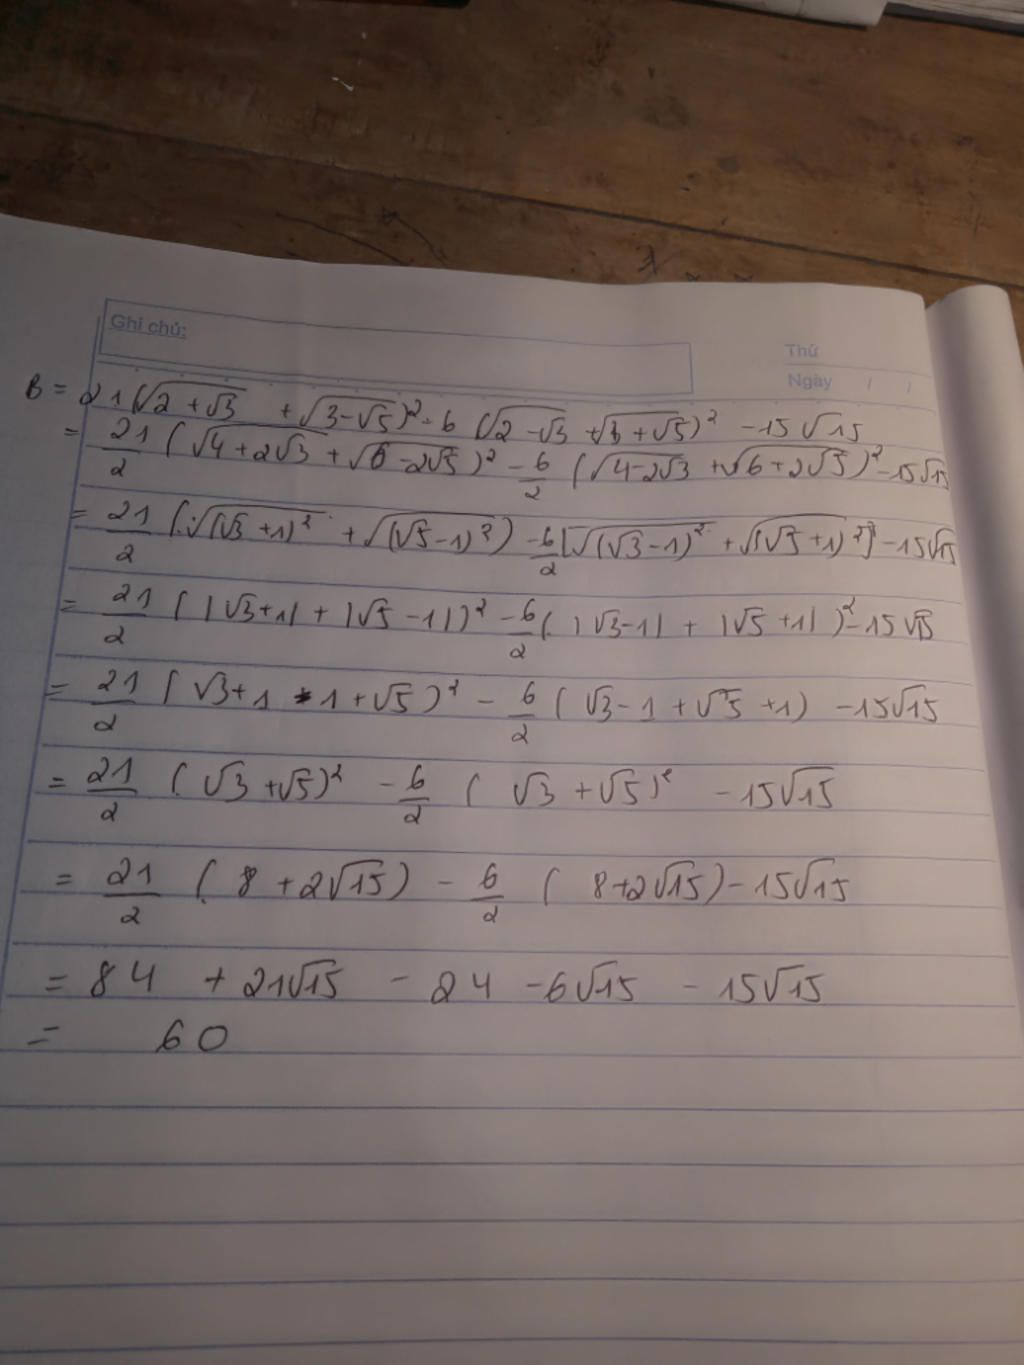 Ghi chú:
Thứ
Ngày / /
B = 21(√(2+√3) + √(3-√5))² - 6(√(2-√3) + √(3+√5))² - 15√15
= 21/2 (√(4+2√3) + √(6-2√5))² - 6/2 (√(4-2√3) + √(6+2√5))² - 15√15
= 21/2 (√(√3+1)² + √(√5-1)²) - 6/2 [√(√3-1)² + √(√5+1)²]² - 15√15
= 21/2 (|√3+1| + |√5-1|)² - 6/2 (|√3-1| + |√5+1|)² - 15√15
= 21/2 (√3+1-1+√5)² - 6/2 (√3-1+√5+1) - 15√15
= 21/2 (√3+√5)² - 6/2 (√3+√5)² - 15√15
= 21/2 (8+2√15) - 6/2 (8+2√15) - 15√15
= 84 + 21√15 - 24 - 6√15 - 15√15
= 60